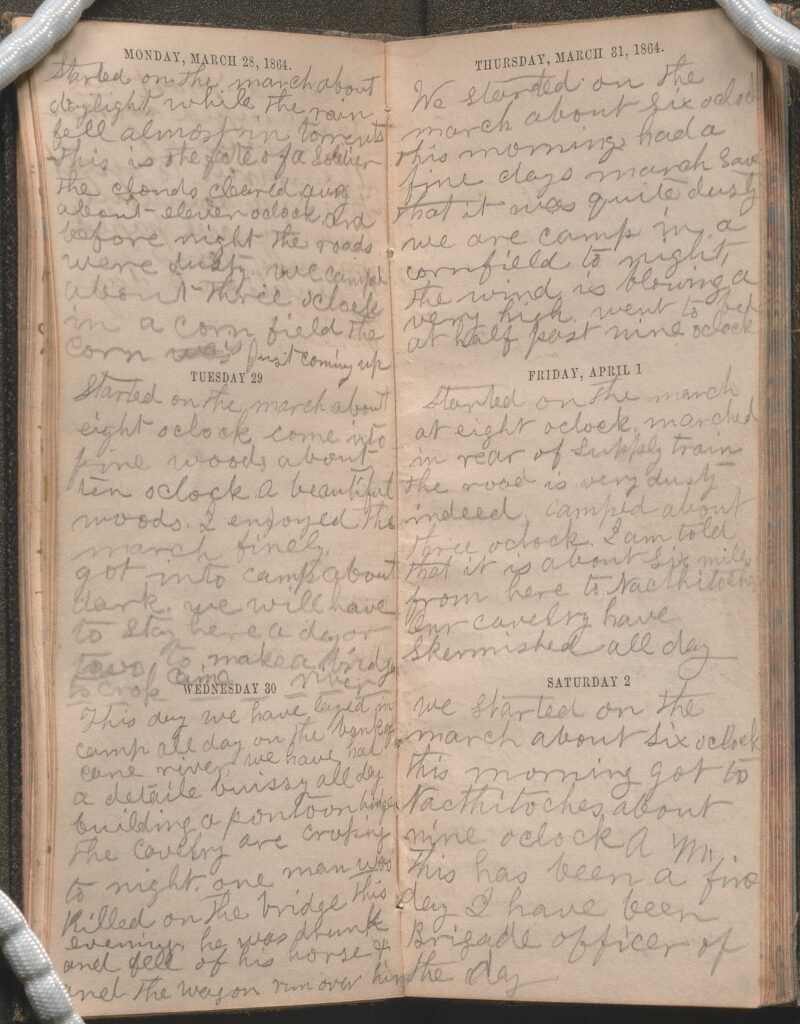 MONDAY, MARCH 28, 1864.
Started on the march about
daylight, while the rain
fell almost in torrents
this is the fate of a Soldier
the clouds cleared away
about eleven oclock and
before night the roads
were dusty. we camped
about three oclock
in a corn field the
corn was just coming up
TUESDAY 29
Started on the march about
eight oclock, come into
pine woods about
ten oclock. a beautiful
woods. I enjoyed the
march finely.
got into camp about
dark. we will have
to Stay here a day or
two to make a bridge
to crop Cane river
WEDNESDAY 30
This day we have layed in
camp all day on the bank of
cane river, we have had
a detaile buissy all day
building a pontoon bridge
the cavelry are croping
to night. one man was
Killed on the bridge this
evening, he was drunk
and fell of his horse &
and the wagon run over him
THURSDAY, MARCH 31, 1864.
We Started on the
march about Six oclock
this morning, had a
fine days march Save
that it was quite dusty
we are camp in a
cornfield to night,
the wind is blowing a
very high. went to bed
at half past nine oclock
FRIDAY, APRIL 1
Started on the march
at eight oclock, marched
in rear of Supply train
the road is very dusty
indeed, camped about
three oclock. I am told
that it is about Six miles
from here to Nacthitoches
Our cavelry have
Skermished all day
SATURDAY 2
we Started on the
march about Six oclock
this morning got to
Nacthitoches about
nine oclock A M.
This has been a fine
day I have been
Brigade officer of
the day